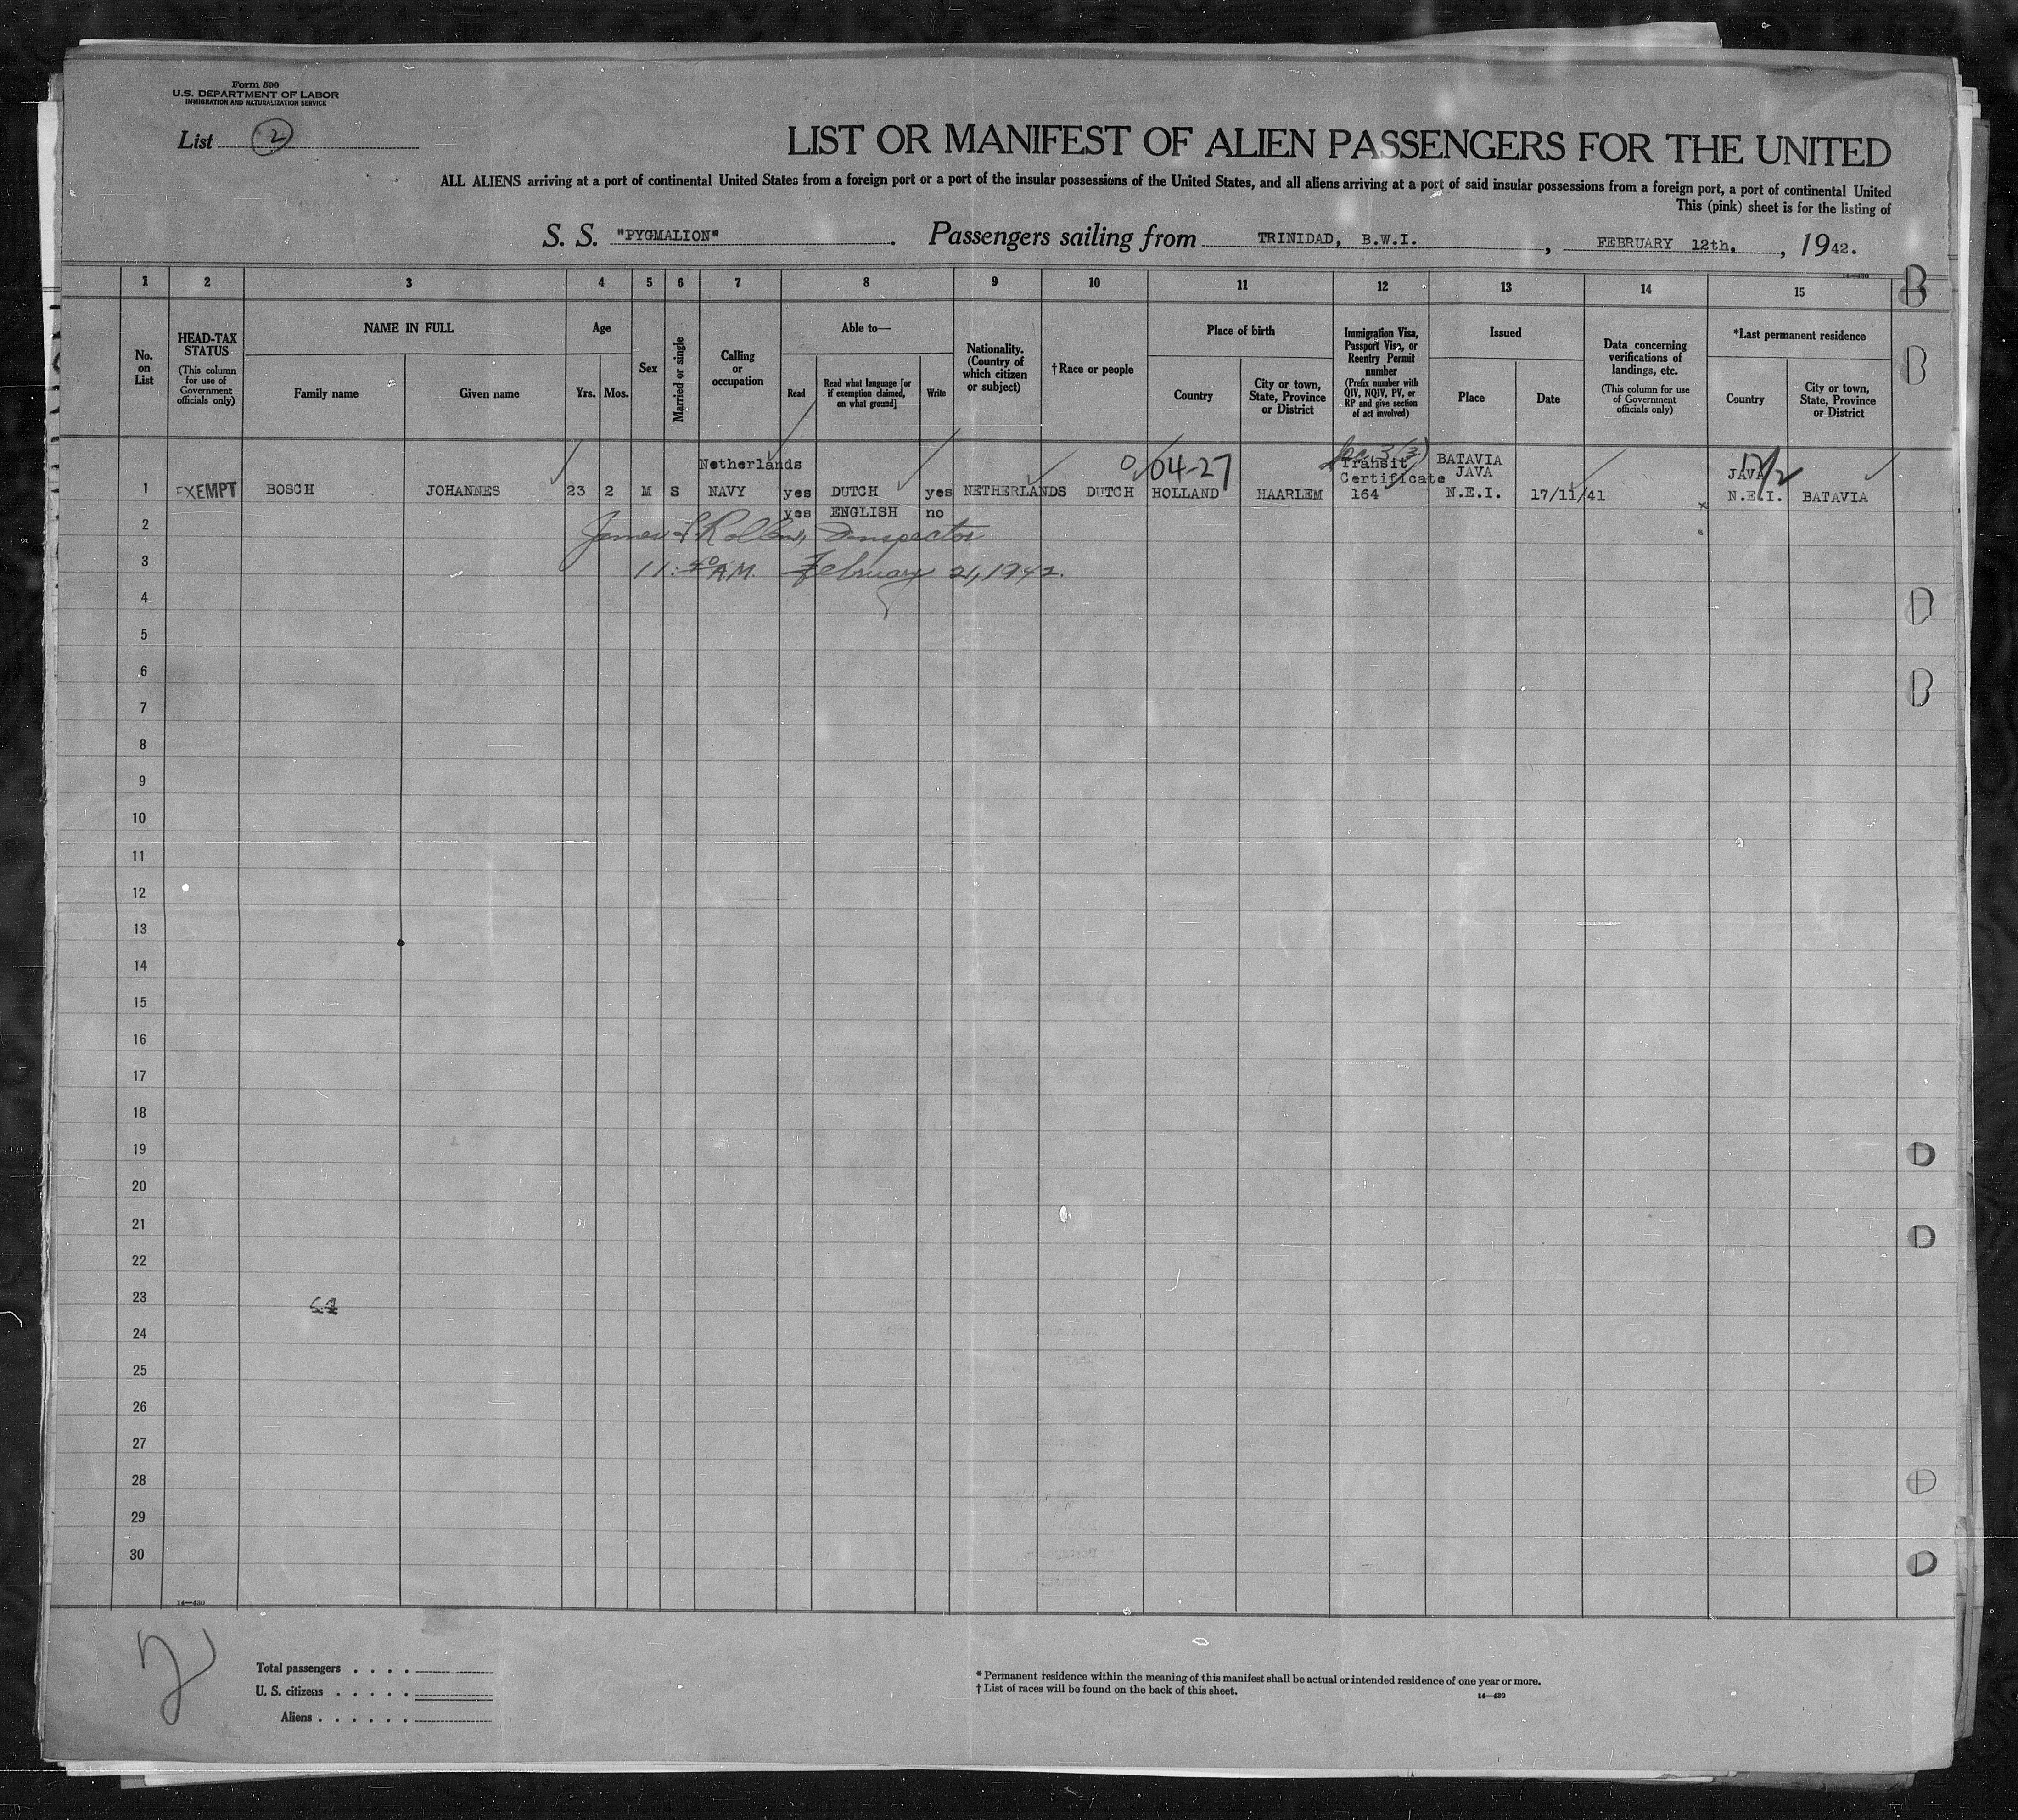 Form 500
U.S. DEPARTMENT OF LABOR
IMMIGRATION AND NATURALIZATION SERVICE
List 2
LIST OR MANIFEST OF ALIEN PASSENGERS FOR THE UNITED
ALL ALIENS arriving at a port of continental United States from a foreign port or a port of the insular possessions of the United States, and all aliens arriving at a port of said insular possessions from a foreign port, a port of continental United
This (pink) sheet is for the listing of
S. S. "PYGMALION". Passengers sailing from TRINIDAD, B.W.I., FEBRUARY 12th., 1942.
14—430
1 2 3 4 5 6 7 8 9 10 11 12 13 14 15
No. on List
HEAD-TAX STATUS
(This column for use of Government officials only)
NAME IN FULL
Family name
Given name
Age
Yrs. Mos.
Sex
Married or single
Calling or occupation
Able to—
Read
Read what language [or if exemption claimed, on what ground]
Write
Nationality. (Country of which citizen or subject)
† Race or people
Place of birth
Country
City or town, State, Province or District
Immigration Visa, Passport Visa, or Reentry Permit number
(Prefix number with QIV, NQIV, PV, or RP and give section of act involved)
Issued
Place
Date
Data concerning verifications of landings, etc.
(This column for use of Government officials only)
*Last permanent residence
Country
City or town, State, Province or District
Netherlands 04-27 3(3) Transit BATAVIA
Certificate JAVA JAVA
1 EXEMPT BOSCH JOHANNES 23 2 M S NAVY yes DUTCH yes NETHERLANDS DUTCH HOLLAND HAARLEM 164 N.E.I. 17/11/41 N.E.I. BATAVIA
yes ENGLISH no
2 James Inspector
3 11:40 A.M. February 21, 1942.
4
5
6
7
8
9
10
11
12
13
14
15
16
17
18
19
20
21
22
23
24
25
26
27
28
29
30
14—430
2
Total passengers
U. S. citizens
Aliens
* Permanent residence within the meaning of this manifest shall be actual or intended residence of one year or more.
† List of races will be found on the back of this sheet.
14—430